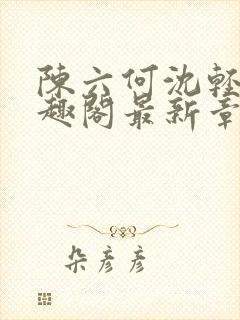 陳六何沈輕
趣閣最新章
朵彥彥